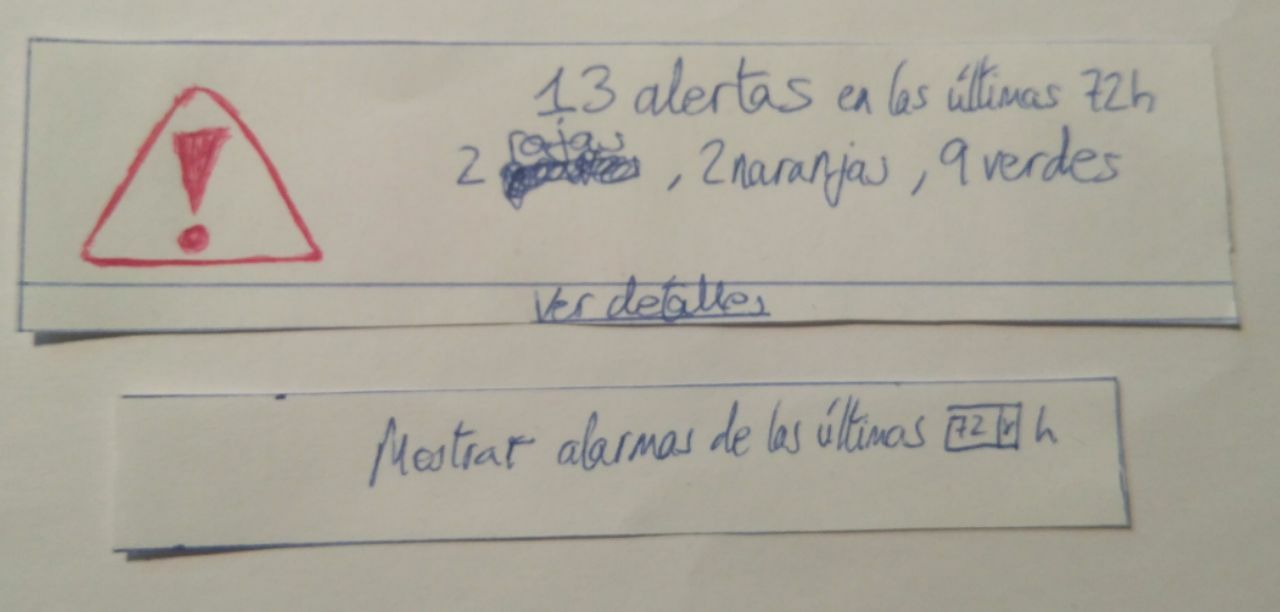 13 alertas en las últimas 72h
2 rojas, 2 naranjas, 9 verdes
ver detalles
Mostrar alarmas de las últimas 72 h